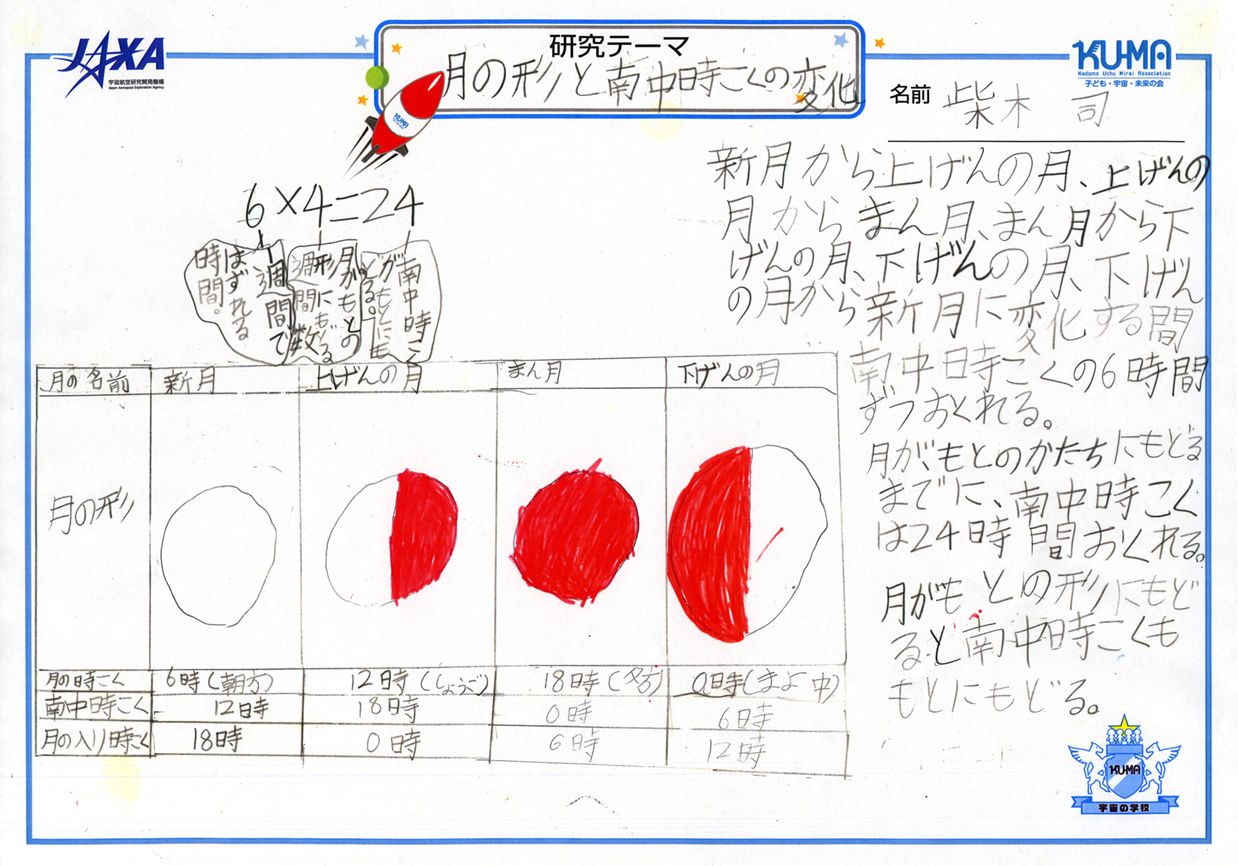 JAXA
宇宙航空研究開発機構
Japan Aerospace Exploration Agency
研究テーマ
月の形と南中時こくの変化
KUMA
Kodomo Uchu Mirai Association
子ども・宇宙・未来の会
名前 柴木 司
新月から上げんの月、上げんの
月からまん月、まん月から下
げんの月、下げんの月、下げん
の月から新月に変化する間
南中時こくの6時間
ずつおくれる。
月がもとのかたちにもどる
までに、南中時こく
は24時間おくれる。
月がもとの形にもど
ると南中時こくも
もとにもどる。
6×4=24
1週間で
はずれる
時間。
月がもとの
形にもどる
週間数
南中時こ
くがもとにも
どる。
月の名前 新月 上げんの月 まん月 下げんの月
月の形
月の時こく 6時(朝方) 12時(しょうご) 18時(夕方) 0時(まよ中)
南中時こく 12時 18時 0時 6時
月の入り時こく 18時 0時 6時 12時
KUMA
KU-MA
宇宙の学校